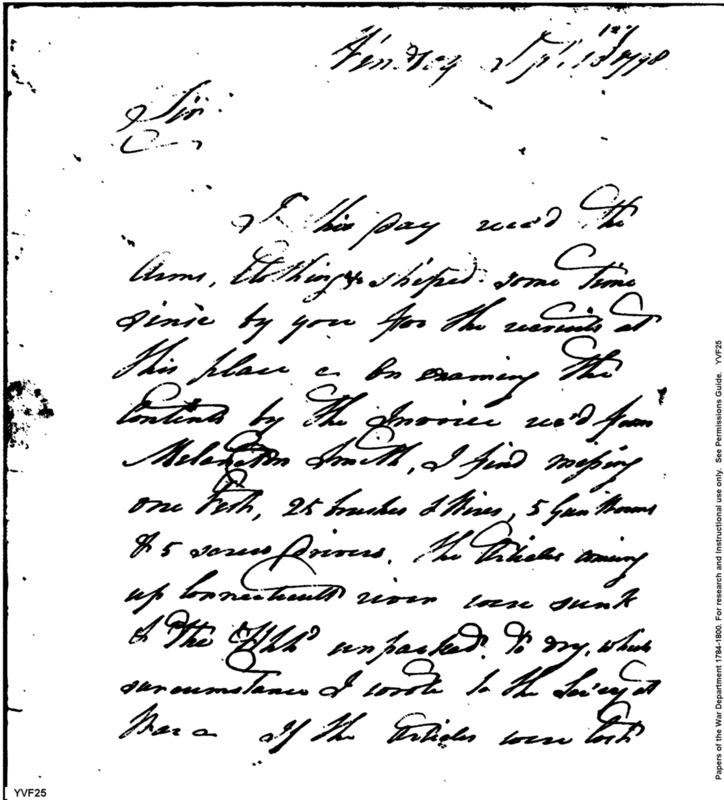 Windsor Sept. 12th 1798
Sir
I this day reced the
Arms, Clothing & shiped some time
since by you for the recruits at
this place On examing the
Contents by the Invoice rec'd from
Melancton Smith, I find missing
one Vest, 25 brushes & Wires, 5 Gun Worms
& 5 screw drivers. The Articles coming
up Connecticutt river were sunk
& the unpacked to dry, which
circumstance I wrote to the Sec'ey at
War If the Articles were lost
YVF25
Papers of the War Department 1784-1800. For research and Instructional use only. See Permissions Guide. YVF25